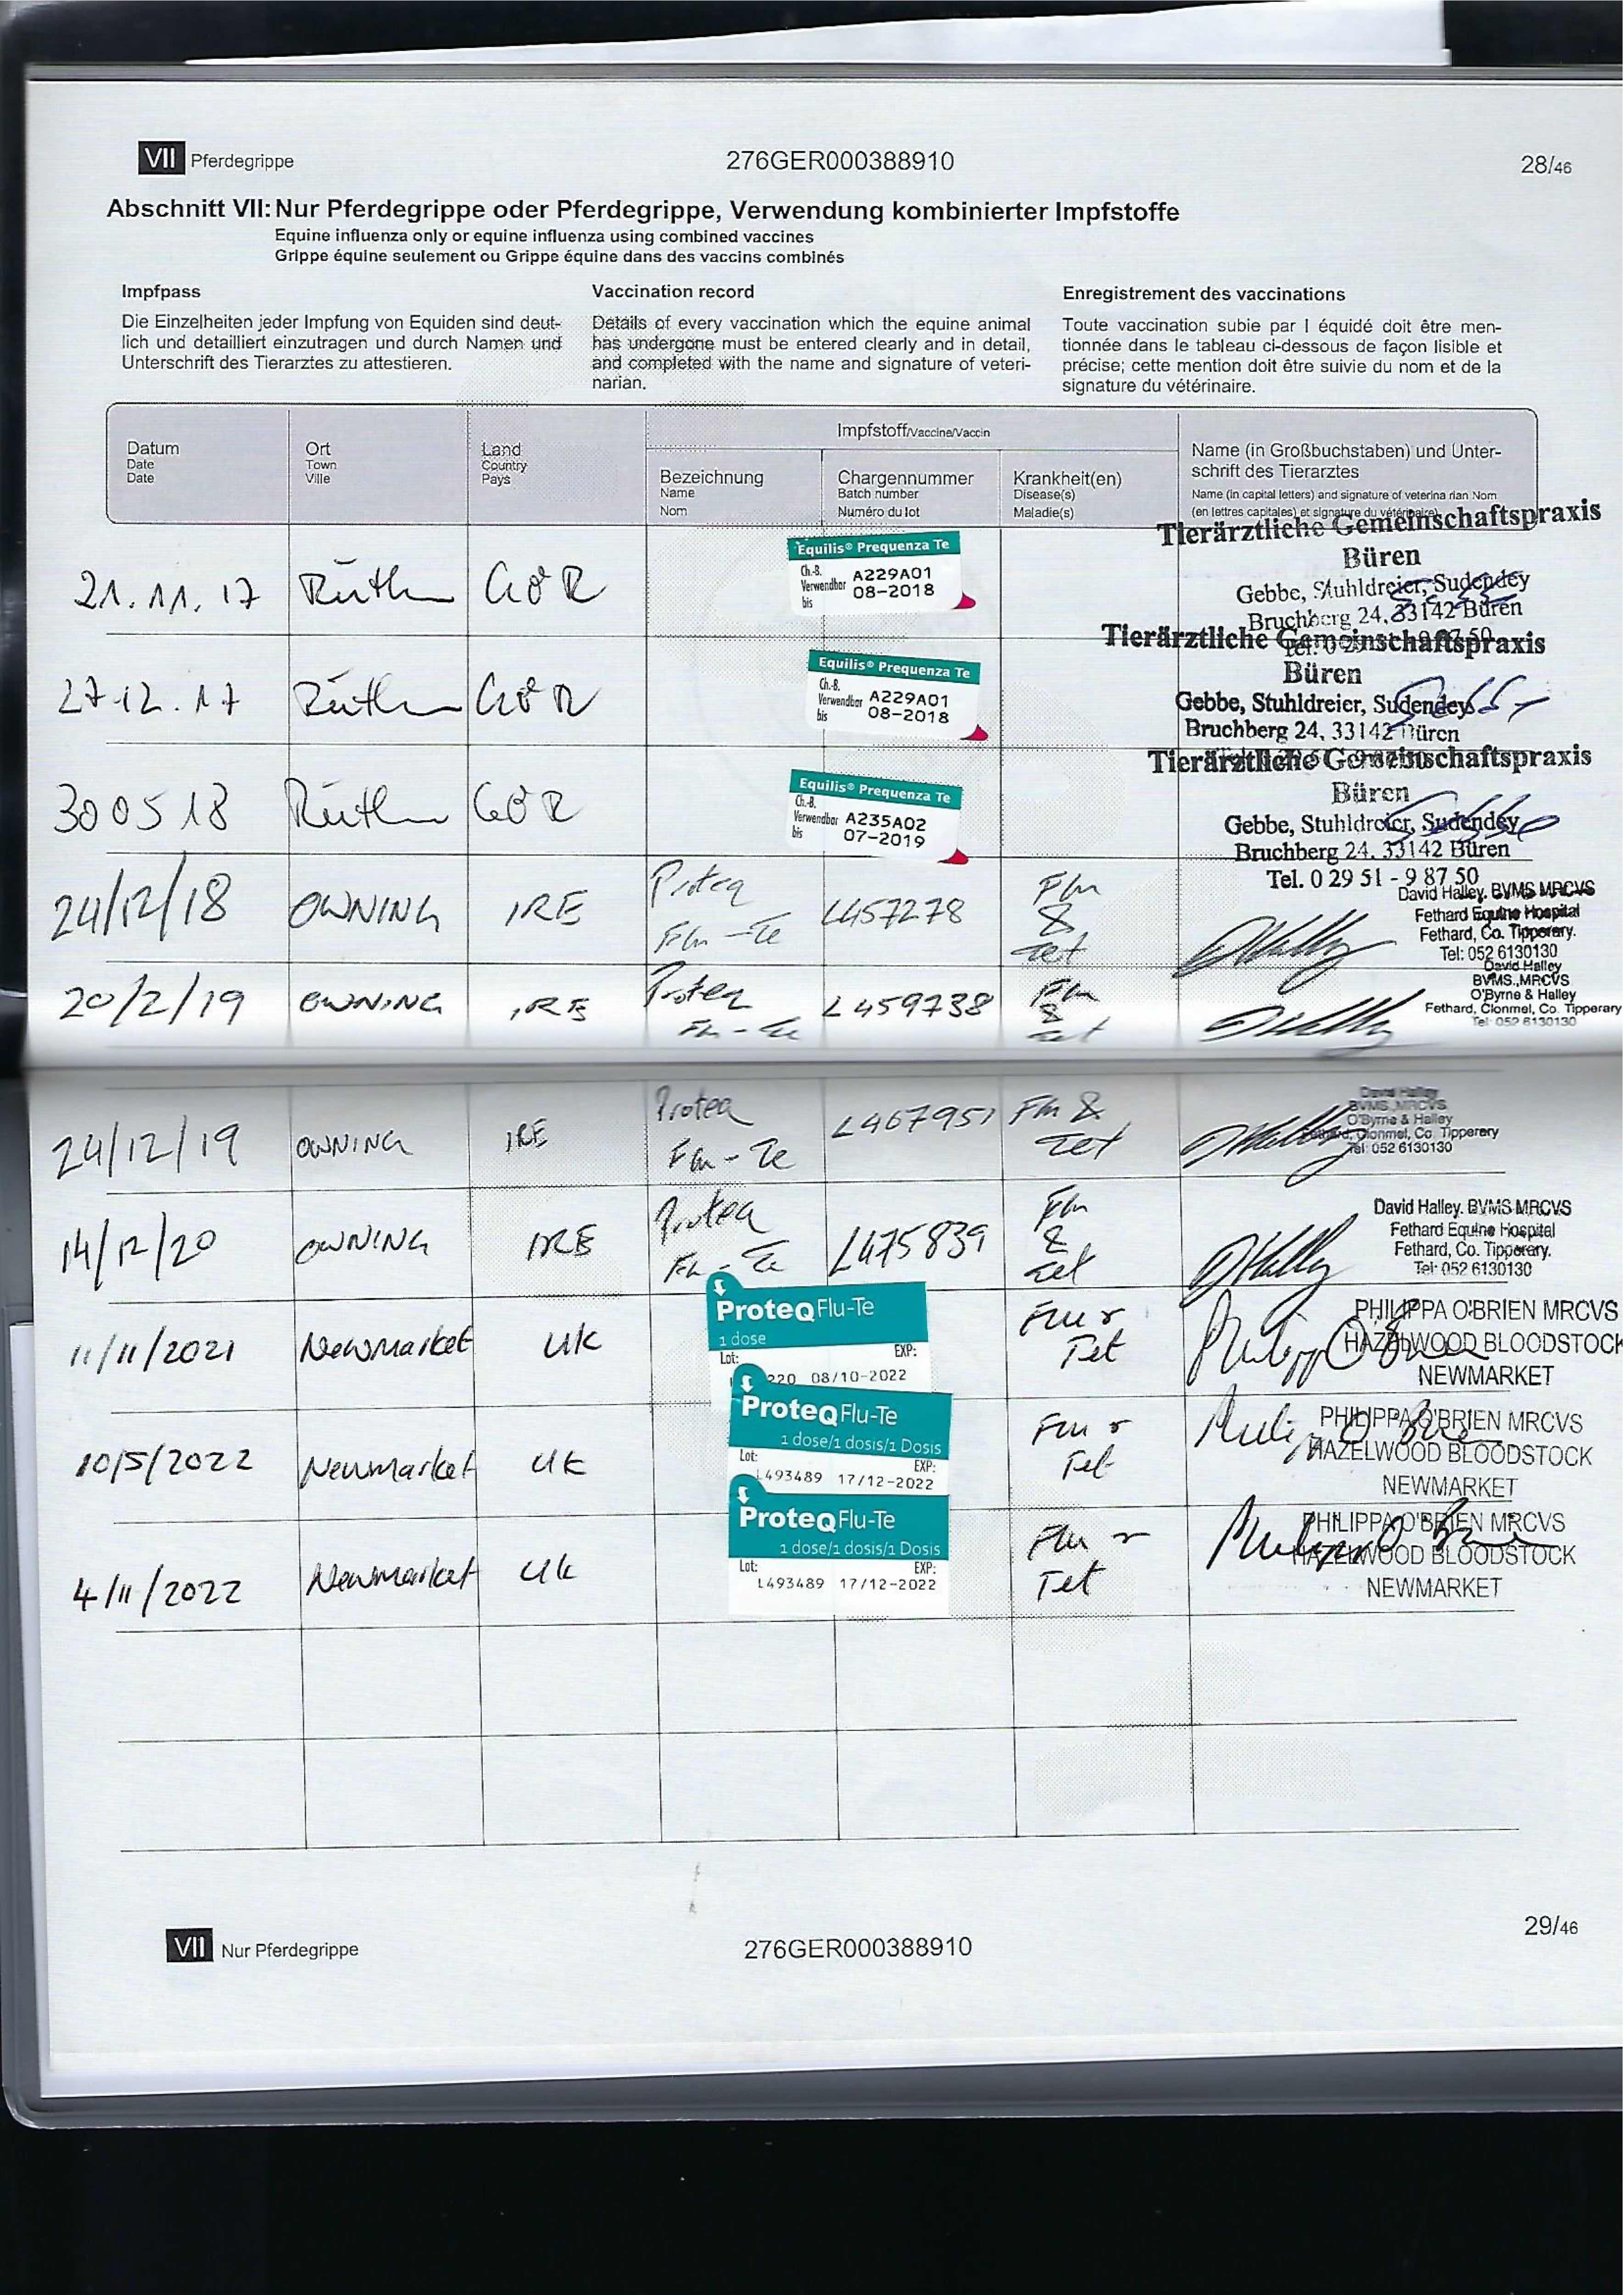 VII Pferdegrippe
276GER000388910
28/46
Abschnitt VII: Nur Pferdegrippe oder Pferdegrippe, Verwendung kombinierter Impfstoffe
Equine influenza only or equine influenza using combined vaccines
Grippe équine seulement ou Grippe équine dans des vaccins combinés
Impfpass
Die Einzelheiten jeder Impfung von Equiden sind deut-
lich und detailliert einzutragen und durch Namen und
Unterschrift des Tierarztes zu attestieren.
Vaccination record
Details of every vaccination which the equine animal
has undergone must be entered clearly and in detail,
and completed with the name and signature of veteri-
narian.
Enregistrement des vaccinations
Toute vaccination subie par l équidé doit être men-
tionnée dans le tableau ci-dessous de façon lisible et
précise; cette mention doit être suivie du nom et de la
signature du vétérinaire.
Datum
Date
Date
Ort
Town
Ville
Land
Country
Pays
Impfstoff/Vaccine/Vaccin
Bezeichnung
Name
Nom
Chargennummer
Batch number
Numéro du lot
Krankheit(en)
Disease(s)
Maladie(s)
Name (in Großbuchstaben) und Unter-
schrift des Tierarztes
Name (in capital letters) and signature of veterina rian Nom
(en lettres capitales) et signature du vétérinaire)
21.11.17
Rüthen
GER
Equilis® Prequenza Te
Ch.-B.
A229A01
Verwendbar
08-2018
bis
Tierärztliche Gemeinschaftspraxis
Büren
Gebbe, Stuhldreier, Sudendey
Bruchberg 24, 33142 Büren
27.12.17
Rüthen
GER
Equilis® Prequenza Te
Ch.-B.
Verwendbar A229A01
bis 08-2018
Tierärztliche Gemeinschaftspraxis
Büren
Gebbe, Stuhldreier, Sudendey
Bruchberg 24, 33142 Büren
30 05 18
Rüthen
GER
Equilis® Prequenza Te
Ch.-B.
Verwendbar A235A02
bis 07-2019
Tierärztliche Gemeinschaftspraxis
Büren
Gebbe, Stuhldreier, Sudendey
Bruchberg 24, 33142 Büren
Tel. 0 29 51 - 9 87 50
24/12/18
OWNING
IRE
Proteq
Flu-Te
L457278
Flu
&
Tet
David Halley. BVMS MRCVS
Fethard Equine Hospital
Fethard, Co. Tipperary.
Tel: 052 6130130
20/2/19
OWNING
IRE
Proteq
Flu-Te
L459738
Flu
&
Tet
David Halley
BVMS.,MRCVS
O'Byrne & Halley
Fethard, Clonmel, Co. Tipperary
Tel: 052 6130130
24/12/19
OWNING
IRE
Proteq
Flu-Te
L467951
Flu &
Tet
David Halley
BVMS.,MRCVS
O'Byrne & Halley
Fethard, Clonmel, Co. Tipperary
Tel: 052 6130130
14/12/20
OWNING
IRE
Proteq
Flu-Te
L475839
Flu
&
Tet
David Halley. BVMS MRCVS
Fethard Equine Hospital
Fethard, Co. Tipperary.
Tel: 052 6130130
11/11/2021
Newmarket
UK
ProteqFlu-Te
1 dose
Lot: EXP:
220 08/10-2022
Flu &
Tet
PHILIPPA O'BRIEN MRCVS
HAZELWOOD BLOODSTOCK
NEWMARKET
10/5/2022
Newmarket
UK
ProteqFlu-Te
1 dose/1 dosis/1 Dosis
Lot: EXP:
L493489 17/12-2022
Flu &
Tet
PHILIPPA O'BRIEN MRCVS
HAZELWOOD BLOODSTOCK
NEWMARKET
4/11/2022
Newmarket
UK
ProteqFlu-Te
1 dose/1 dosis/1 Dosis
Lot: EXP:
L493489 17/12-2022
Flu &
Tet
PHILIPPA O'BRIEN MRCVS
HAZELWOOD BLOODSTOCK
NEWMARKET
VII Nur Pferdegrippe
276GER000388910
29/46